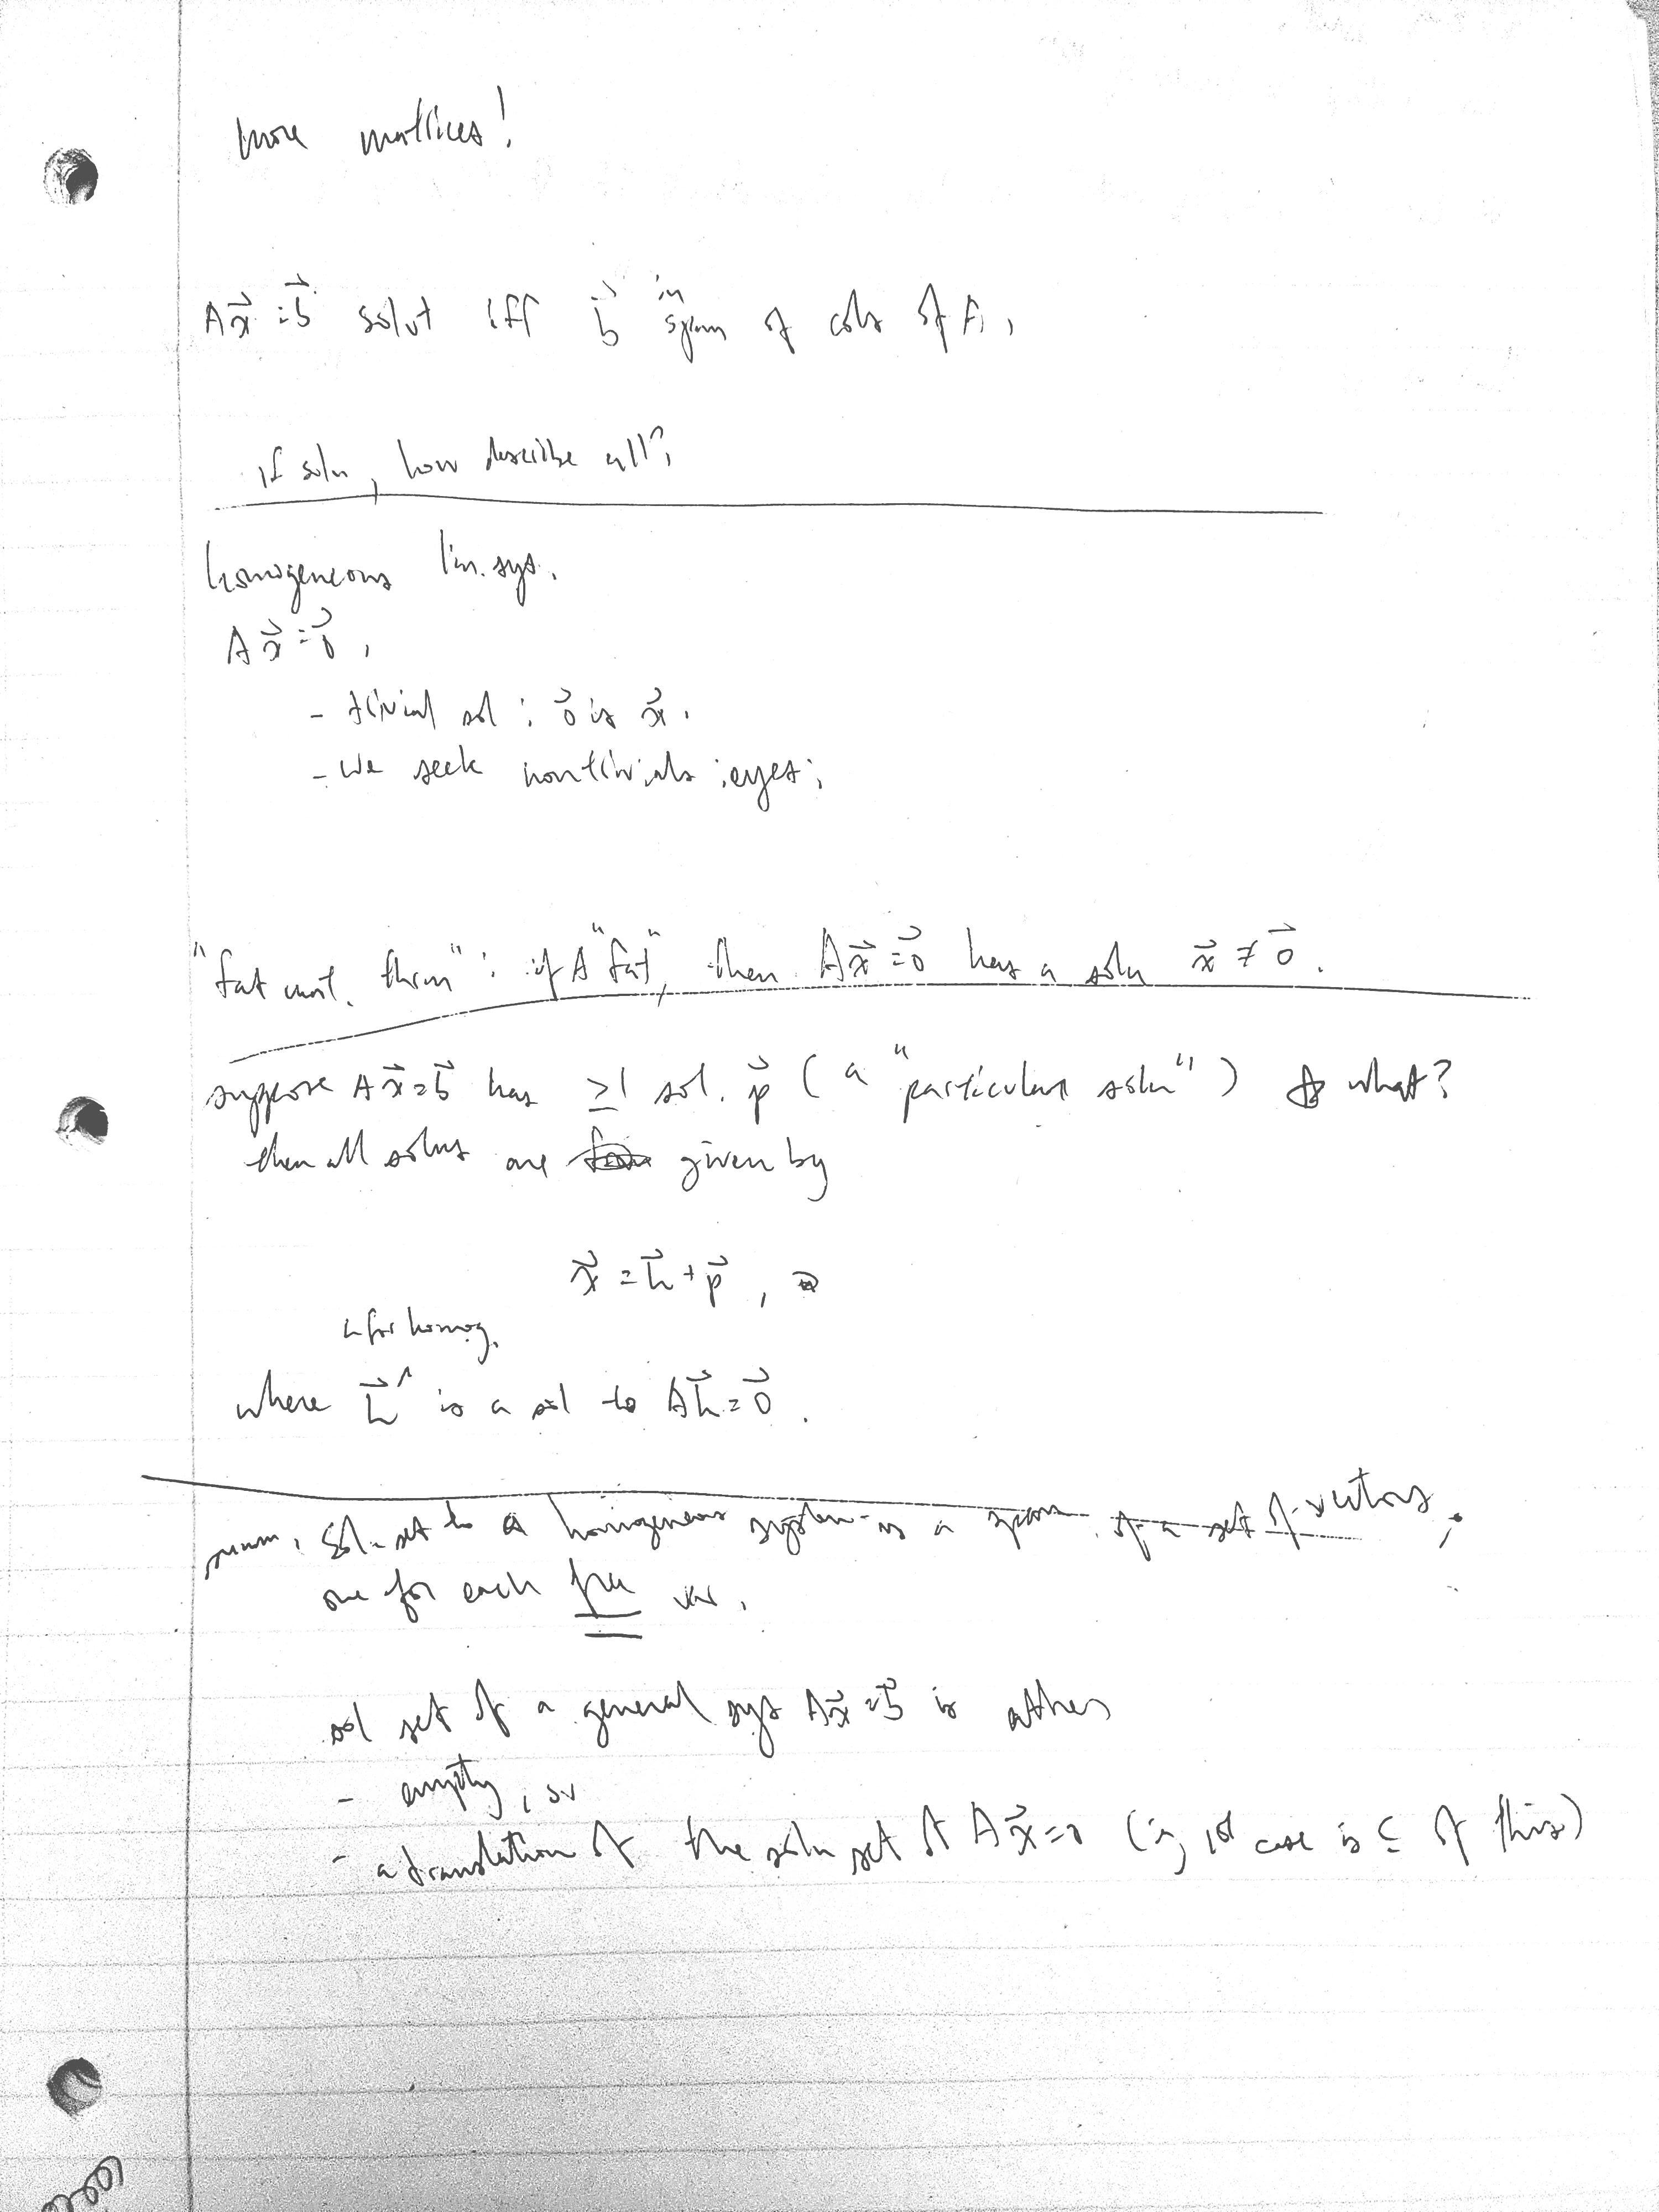 more matrices!
Ax⃗ = b⃗ solut iff b⃗ in span of cols of A.
if soln, how describe all?
homogeneous lin. sys.
Ax⃗ = 0⃗,
- trivial sol : 0⃗ is x⃗.
- we seek nontrivials :eyes:
"fat mat. thrm" : if A "fat", then Ax⃗ = 0⃗ has a soln x⃗ ≠ 0⃗.
suppose Ax⃗ = b⃗ has ≥1 sol. p⃗ (a "particular soln") what?
then all solns are given by
x⃗ = h⃗ + p⃗,
h for homog.
where h⃗ ^ is a sol to Ah⃗ = 0⃗.
summ. sol. set to a homogeneous system is a span of a set of vectors,
one for each free var.
sol set of a general sys Ax⃗ = b⃗ is either
- empty, or
- a translation of the soln set of Ax⃗ = 0 ( 1st case is ⊆ of this)